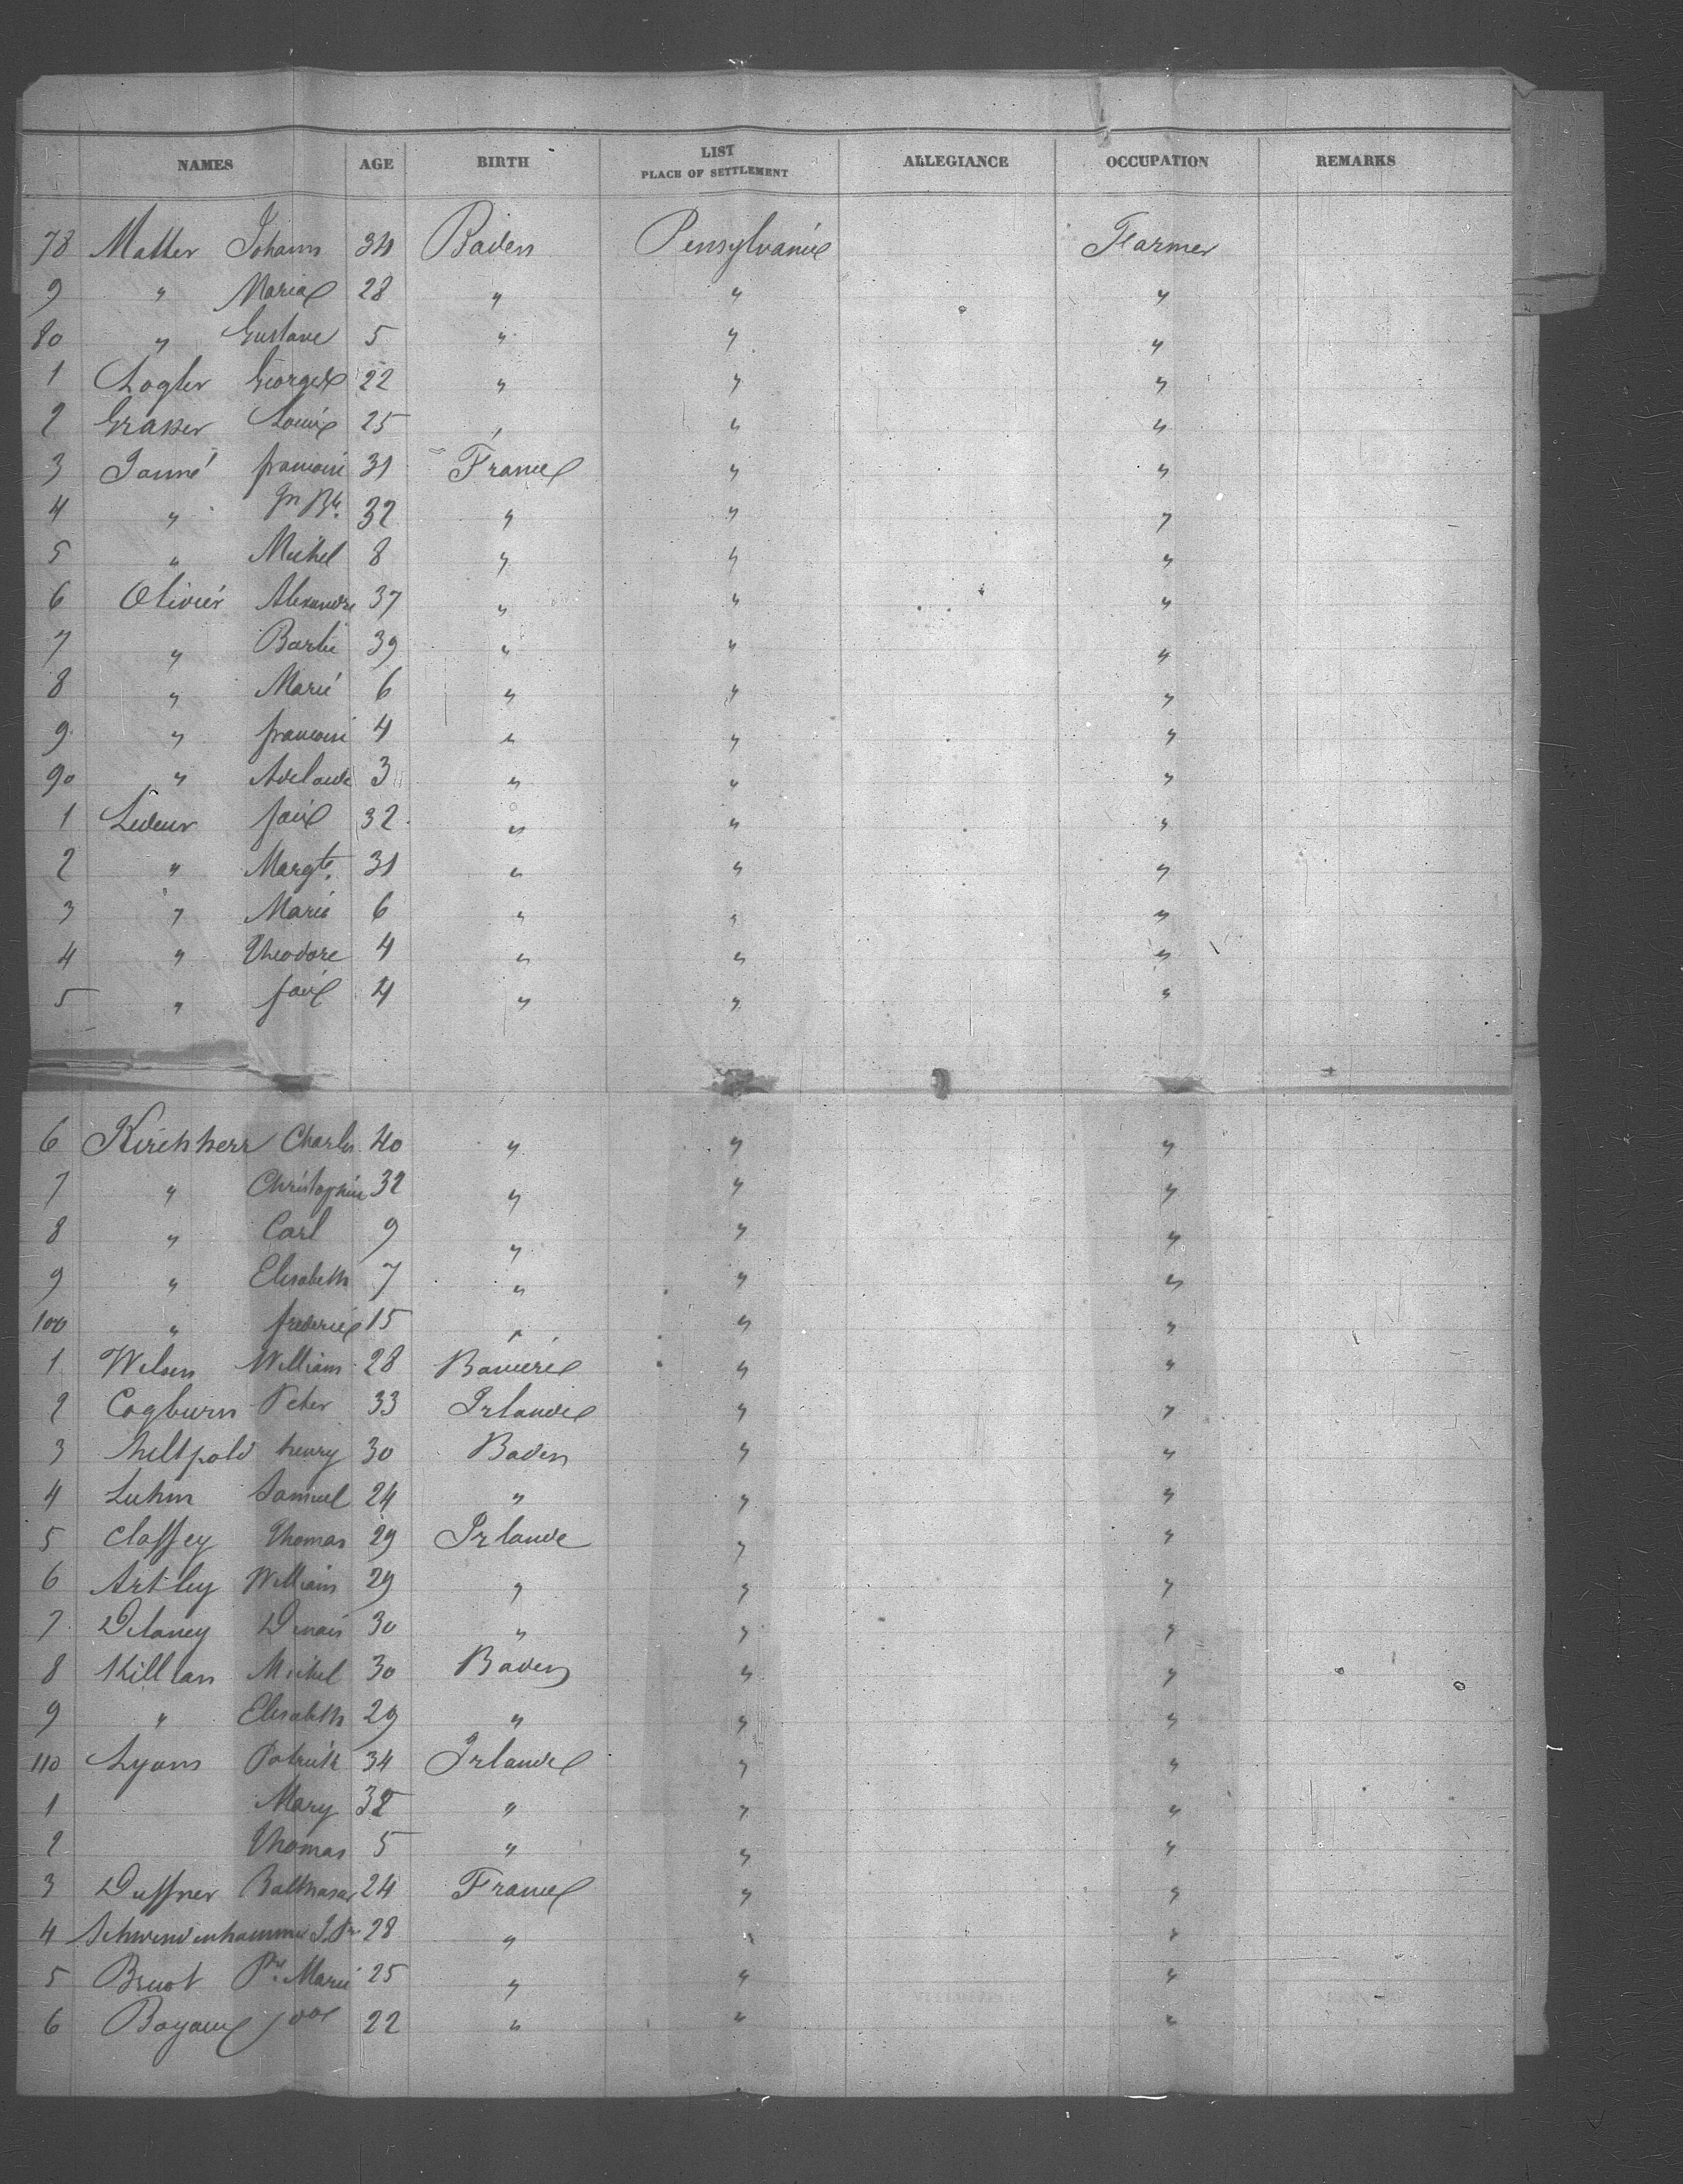 NAMES AGE BIRTH LIST PLACE OF SETTLEMENT ALLEGIANCE OCCUPATION REMARKS
78 Matter Johann 34 Baden Pensylvanie Farmer
9 " Maria 28 " " "
80 " Gustave 5 " " "
1 Logler George 22 " " "
2 Graser Louis 25 " " "
3 Janné 31 France " "
4 " 32 " " "
5 " Michel 8 " " "
6 Olivier Alexandre 37 " " "
7 " Barbe 39 " " "
8 " Marie 6 " " "
9 " 4 " " "
90 " Adelaide 3 " " "
1 32 " " "
2 " Margte. 31 " " "
3 " Marie 6 " " "
4 " Theodore 4 " " "
5 " 4 " " "
6 Kirchherr Charles 40 " " "
7 " Christophine 32 " " "
8 " Carl 9 " " "
9 " Elisabeth 7 " " "
100 " frederic 15 " " "
1 Welsen William 28 Baviere " "
2 Cogburn Peter 33 Irlande " "
3 henry 30 Baden " "
4 Samuel 24 " " "
5 Claffey Thomas 29 Irlande " "
6 Artley William 29 " " "
7 Delaney Denais 30 " " "
8 Killian Michel 30 Baden " "
9 " Elisabeth 29 " " "
110 Lyons Patrick 34 Irlande " "
1 Mary 32 " " "
2 Thomas 5 " " "
3 Duffner Balthasar 24 France " "
4 Schwendenhammer 28 " " "
5 Bruot Marie 25 " " "
6 22 " " "